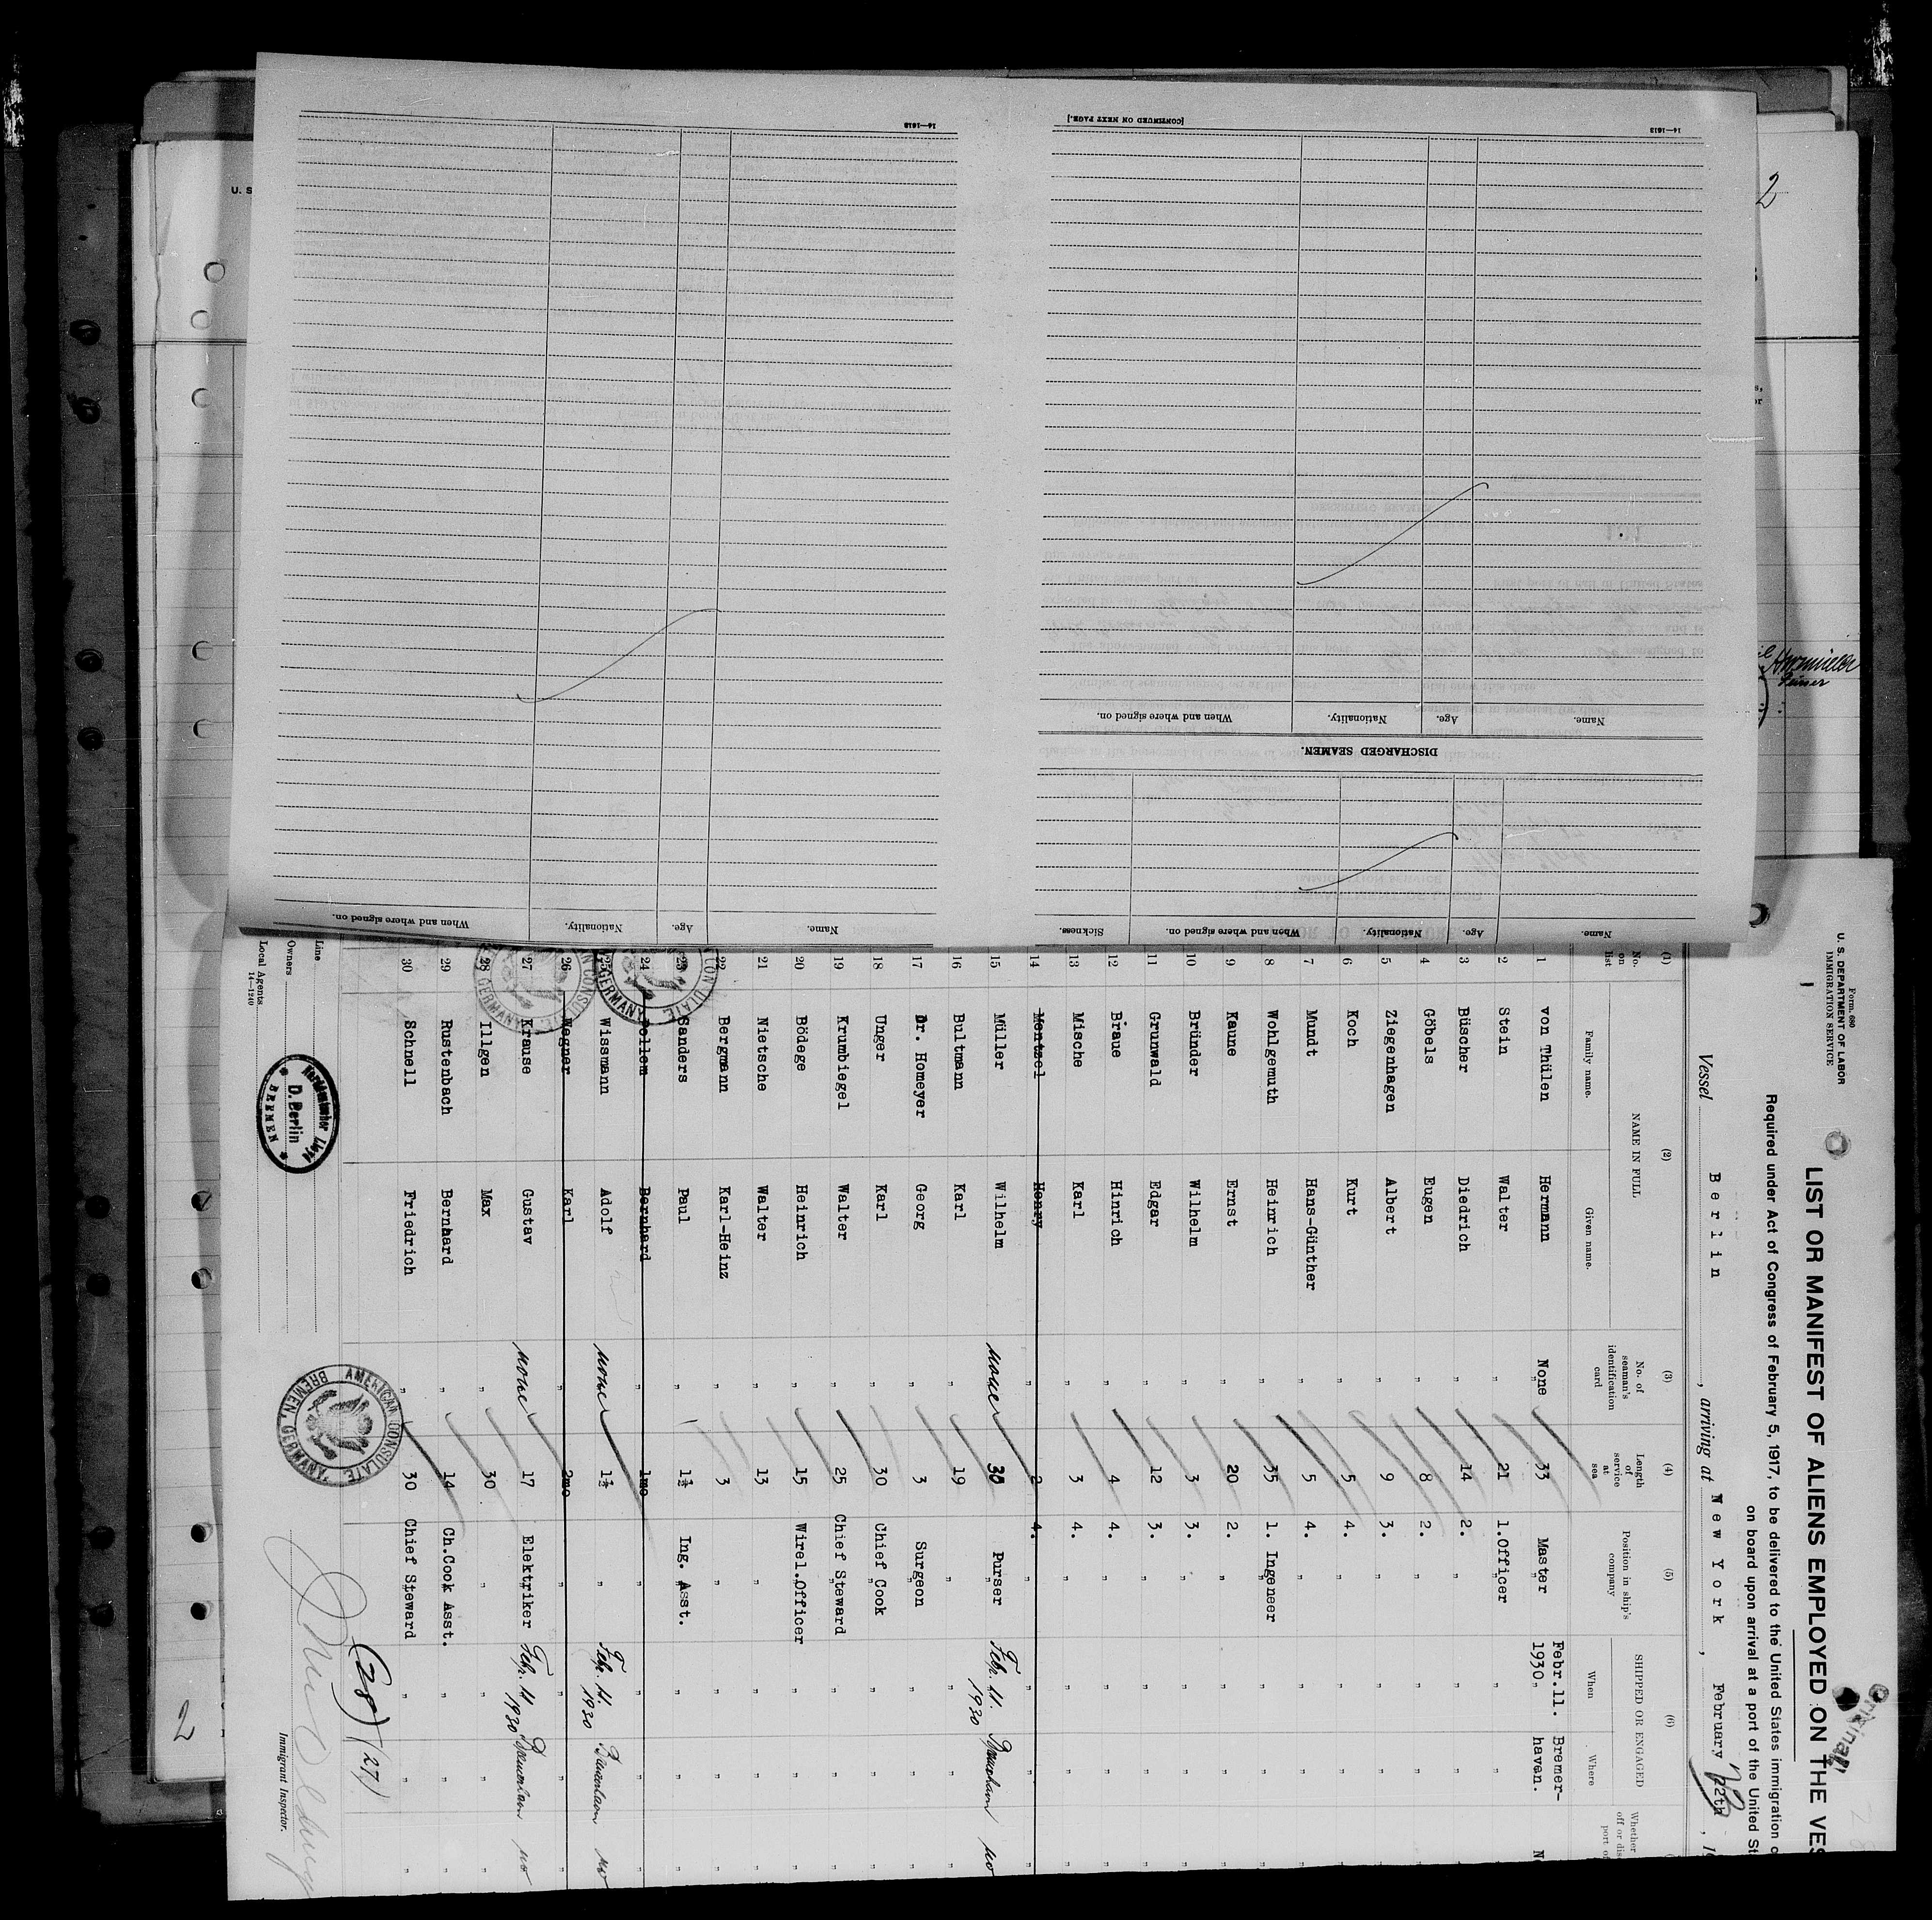 14—1613
[CONTINUED ON NEXT PAGE.]
14—1613
Name.
Age.
Nationality.
When and where signed on.
DISCHARGED SEAMEN.
Name.
Age.
Nationality.
When and where signed on.
Sickness.
Name.
Age.
Nationality.
When and where signed on.
U. S
2
Original
Form 680
U. S. DEPARTMENT OF LABOR
IMMIGRATION SERVICE
LIST OR MANIFEST OF ALIENS EMPLOYED ON THE VES
Required under Act of Congress of February 5, 1917, to be delivered to the United States immigration o
on board upon arrival at a port of the United St
Vessel Berlin , arriving at New York , February 22th , 19
(1) (2) (3) (4) (5) (6)
No. on list
NAME IN FULL
Family name. Given name.
No. of seaman's identification card
Length of service at sea
Position in ship's company
SHIPPED OR ENGAGED
When Where
Whether
off or dis
port of
1 von Thülen Hermann None 33 Master Febr.11. 1930 Bremer-haven. No
2 Stein Walter " 21 1.Officer " "
3 Büscher Diedrich " 14 2. " " "
4 Göbels Eugen " 8 2. " " "
5 Ziegenhagen Albert " 9 3. " " "
6 Koch Kurt " 5 4. " " "
7 Mundt Hans-Günther " 5 4. " " "
8 Wohlgemuth Heinrich " 35 1. Ingeneer " "
9 Kaune Ernst " 20 2. " " "
10 Bründer Wilhelm " 3 3. " " "
11 Grunwald Edgar " 12 3. " " "
12 Braue Hinrich " 4 4. " " "
13 Mische Karl " 3 4. " " "
14 Mentzel Henry " 2 4. " " "
15 Müller Wilhelm none 30 Purser Febr. 11. 1930 Bremerhaven no
16 Bultmann Karl " 19 " " "
17 Dr. Homeyer Georg " 3 Surgeon " "
18 Unger Karl " 30 Chief Cook " "
19 Krumbiegel Walter " 25 Chief Steward " "
20 Bödege Heinrich " 15 Wirel.Officer " "
21 Nietsche Walter " 13 " " "
22 Bergmann Karl-Heinz " 3 " " "
23 Sanders Paul " 1½ Ing. Asst. " "
24 Bernhard " 1mo " " "
25 Wissmann Adolf none 1½ " Febr. 11. 1930 Bremerhaven no
26 Wegner Karl " 2mo " " "
27 Krause Gustav none 17 Elektriker Febr. 11 1930 Bremerhaven no
28 Illgen Max " 30 " " "
29 Rustenbach Bernhard " 14 Ch.Cook Asst. " "
30 Schnell Friedrich " 30 Chief Steward " "
(28) (27)
Line
Owners
Local Agents
14—1240
Immigrant Inspector.
Norddeutscher Lloyd
D. Berlin
BREMEN
AMERICAN CONSULATE
BREMEN, GERMANY
N CONSULATE
GERMANY
CONSULATE
GERMANY
2